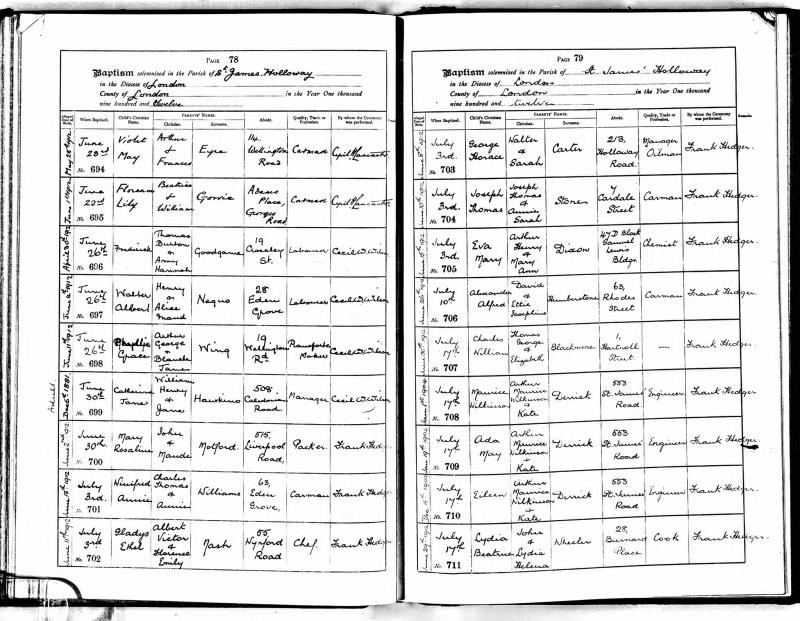 PAGE 78
Baptism solemnised in the Parish of St. James. Holloway
in the Diocese of London
County of London in the Year One thousand
nine hundred and twelve
Alleged Date of Birth. When Baptised. Child's Christian Name. PARENTS' NAMES. Christian. Surname. Abode. Quality, Trade or Profession. By whom the Ceremony was performed.
May 28th 1912 June 23rd No. 694 Violet May Arthur & Frances Eyre 14. Wellington Road Carman Cyril
June 1912 June 23rd No. 695 Florence Lily Beatrice & William Place, Georges Road Carman Cyril
April 30th 1912 June 26th No. 696 Frederick Thomas Burton or Annie Hannah Goodgame 19 St. Labourer Cecil W. Wilson
June 4th 1912 June 26th No. 697 Walter Albert Henry or Alice Maud Negus 28 Eden Grove Labourer Cecil W. Wilson
June 11th 1912 June 26th No. 698 Phyllis Grace Arthur George or Blanche Jane Wing 19 Wellington Rd Pianoforte Maker Cecil W. Wilson
Adult. Dec 6th 1881 June 30th No. 699 Catherine Jane William Henry & Jane Hawkins 508, Caledonian Road Manager Cecil W. Wilson
June 2nd 1912 June 30th No. 700 Mary Rosaline John & Maude Motford. 515, Liverpool Road, Packer. Frank Hedger.
June 13th 1912 July 3rd. No. 701 Winifred Annie Charles Thomas & Annie Williams 63, Eden Grove, Carman Frank Hedger.
June 11th 1912 July 3rd No. 702 Gladys Ethel Albert Victor & Florence Emily Nash 55 Wynford Road Chef. Frank Hedger.
PAGE 79
Baptism solemnised in the Parish of St. James' Holloway
in the Diocese of London
County of London in the Year One thousand
nine hundred and twelve
Alleged Date of Birth. When Baptised. Child's Christian Name. PARENTS' NAMES. Christian. Surname. Abode. Quality, Trade or Profession. By whom the Ceremony was performed. Remarks
1912 July 3rd. No. 703 George Horace Walter & Sarah Carter 213, Holloway Road. Manager Oilman Frank Hedger.
1912 July 3rd. No. 704 Joseph Thomas Joseph Thomas & Annie Sarah Stone 7 Cardale Street Carman Frank Hedger.
1912 July 3rd. No. 705 Eva Mary Arthur Henry & Mary Ann Dixon 47 D Block Samuel Lewis Bldgs. Chemist Frank Hedger.
1912 July 10th No. 706 Alexander Alfred David & Ettie Josephine Humberstone 63, Rhodes Street Carman Frank Hedger.
June 30th 1912 July 17th No. 707 Charles William Thomas George & Elizabeth Blackmore 1, Hartnoll Street. — Frank Hedger.
1904 July 17th No. 708 Maurice Wilkinson Arthur Maurice Wilkinson & Kate Derrick 553 St. James' Road. Engineer Frank Hedger
July 17th No. 709 Ada May Arthur Maurice Wilkinson & Kate Derrick 553 St James' Road Engineer Frank Hedger.
July 17th No. 710 Eileen Arthur Maurice Wilkinson & Kate Derrick 553 St. James' Road Engineer Frank Hedger.
1912 July 17th No. 711 Lydia Beatrice John & Lydia Helena Wheeler 28, Place Cook Frank Hedger.